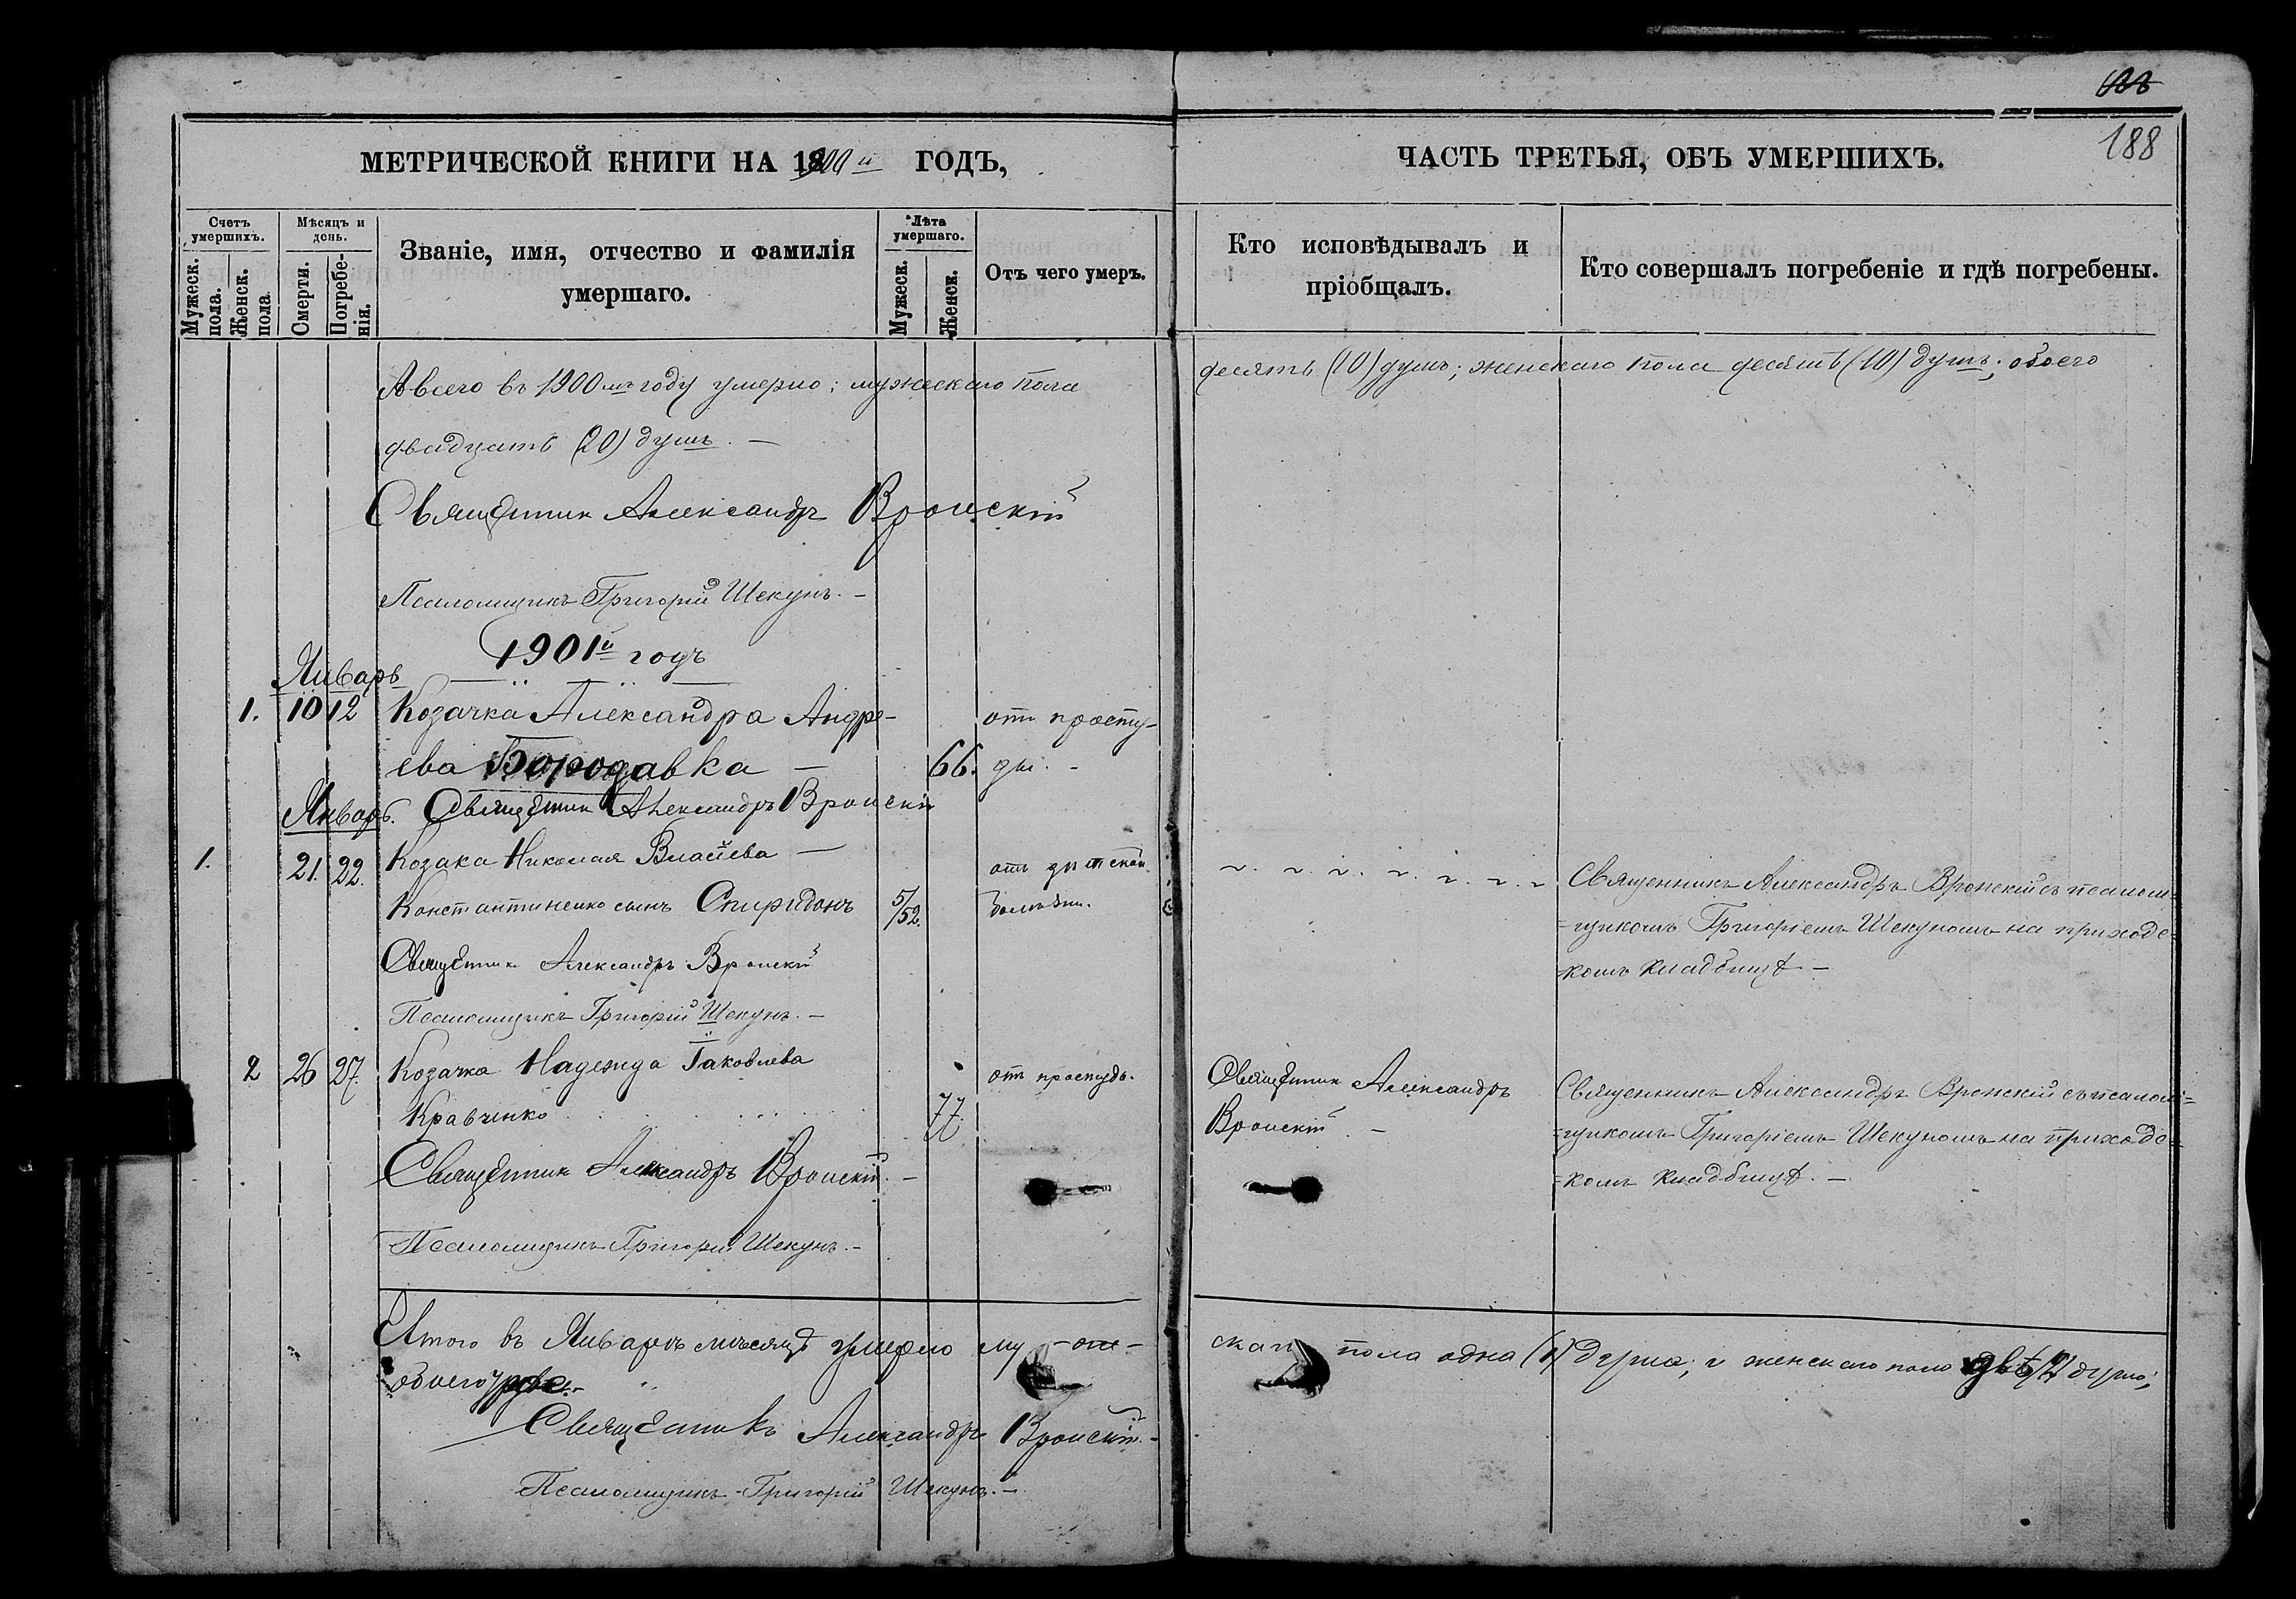 188
МЕТРИЧЕСКОЙ КНИГИ НА 1900й ГОДЪ,
ЧАСТЬ ТРЕТЬЯ, ОБЪ УМЕРШИХЪ.
Счетъ умершихъ.
Мужеск. пола.
Женск. пола.
Мѣсяцъ и день.
Смерти.
Погребенія.
Званіе, имя, отчество и фамилія
умершаго.
Лѣта умершаго.
Мужеск.
Женск.
Отъ чего умеръ.
Кто исповѣдывалъ и
пріобщалъ.
Кто совершалъ погребеніе и гдѣ погребены.
А всего въ 1900мъ году умерло; мужескаго пола десять (10) душъ; женскаго пола десять (10) душъ; обоего
двадцать (20) душъ. —
Священникъ Александръ Вронскій
Псаломщикъ Григорій Шекунъ. —
1901й годъ
Январь
1. 10 12 Козачка Александра Андре- отъ просту-
ева Бородавка — 66. ды. -
Январь. Священникъ Александръ Вронскій
1. 21. 22. Козака Николая Власіева — отъ дѣтской Священникъ Александръ Вронскій съ псалом-
Константиненко сынъ Спиридонъ 5/52. болѣзни. =щикомъ Григоріемъ Шекуномъ на приходс-
Священникъ Александръ Вронскій =комъ кладбищѣ. —
Псаломщикъ Григорій Шекунъ. —
2 26 27. Козачка Надежда Іаковлева отъ простуды. Священникъ Александръ Священникъ Александръ Вронскій съ псалом=
Кравченко 77. Вронскій. — =щикомъ Григоріемъ Шекуномъ на приходс-
Священникъ Александръ Вронскій. — =комъ кладбищѣ. —
Псаломщикъ Григорій Шекунъ. —
Итого въ Январѣ мѣсяцѣ умерло му скаго пола одна (1) душа; и женскаго пола двѣ (2) душъ;
обоего
Священникъ Александръ Вронскій. —
Псаломщикъ Григорій Шекунъ. —